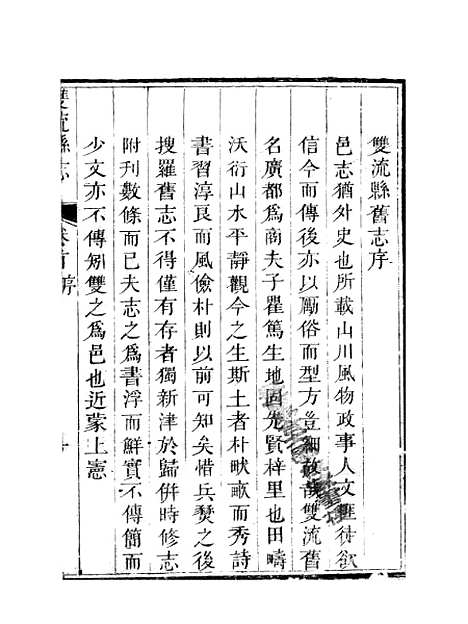 雙流縣舊志序
邑志猶外史也所載山川風物政事人文匪徒欲
信今而傳後亦以勵俗而型方豈細故哉雙流舊
名廣都為商夫子瞿篤生地固先賢梓里也田疇
沃衍山水平靜觀今之生斯土者朴畎畝而秀詩
書習淳良而風儉朴則以前可知矣惜兵燹之後
搜羅舊志不得僅有存者獨新津於歸併時修志
附刊數條而已夫志之為書浮而鮮實不傳簡而
少文亦不傳矧雙之為邑也近蒙上憲
雙流縣志
卷首 序